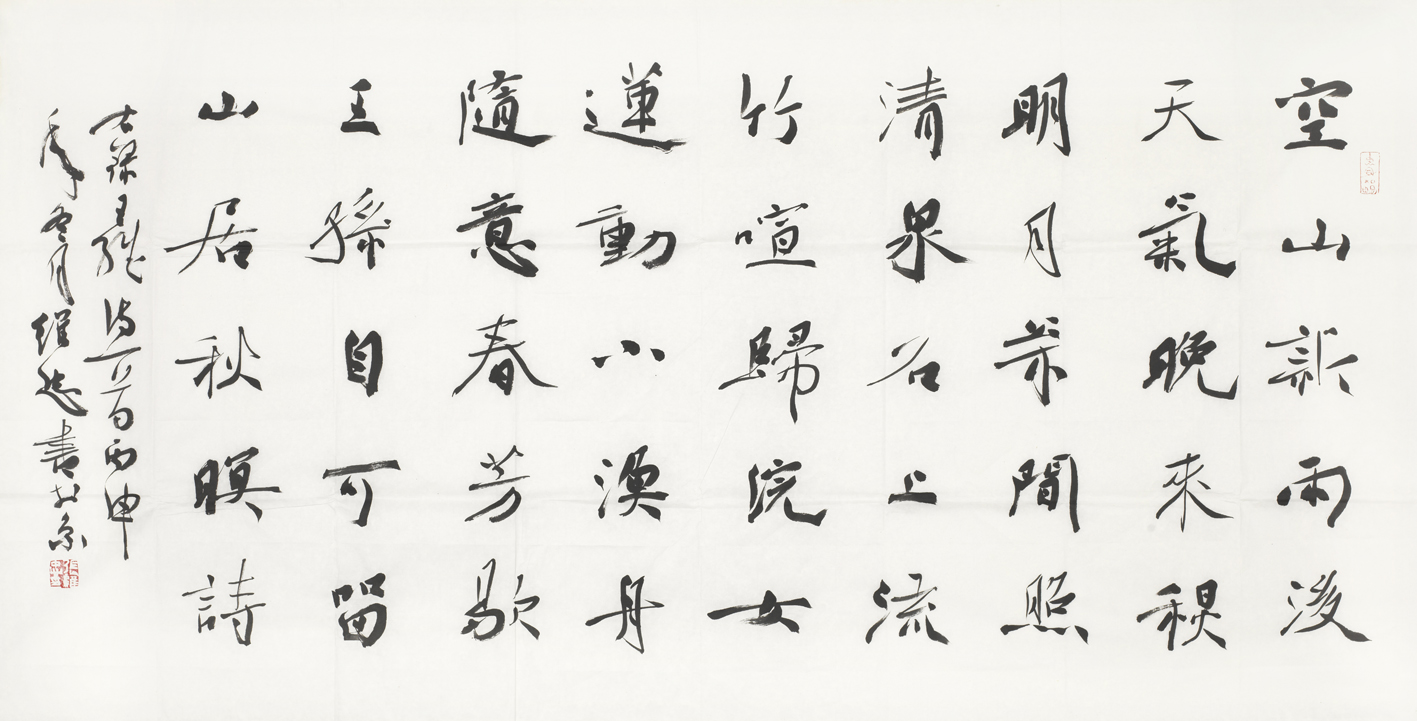 空山新雨後
天氣晚來秋
明月松間照
清泉石上流
竹喧歸浣女
蓮動下漁舟
隨意春芳歇
王孫自可留
山居秋暝詩
右錄王維詩一首丙申
年冬月維忠書於京